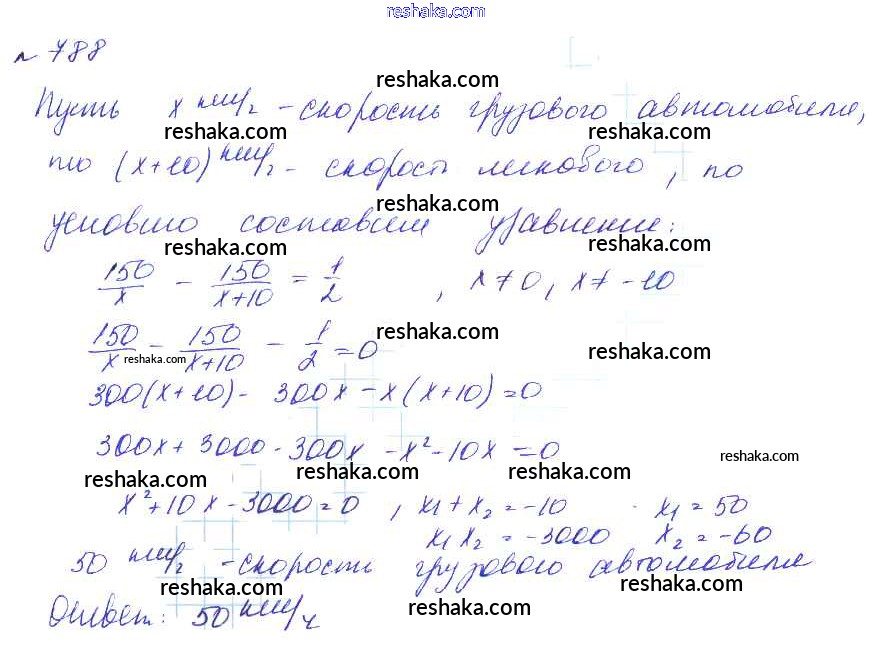 reshaka.com
№ 788
reshaka.com
Пусть x км/ч - скорость грузового автомобиля,
reshaka.com reshaka.com
то (x+10) км/ч - скорость легкового, по
reshaka.com
условию составим уравнение:
reshaka.com reshaka.com
150/x - 150/(x+10) = 1/2, x≠0, x≠-10
reshaka.com
150/x - 150/(x+10) - 1/2 = 0
reshaka.com reshaka.com
300(x+10) - 300x - x(x+10) = 0
300x + 3000 - 300x - x² - 10x = 0
reshaka.com reshaka.com reshaka.com reshaka.com
x² + 10x - 3000 = 0, x₁ + x₂ = -10 x₁ = 50
x₁x₂ = -3000 x₂ = -60
50 км/ч - скорость грузового автомобиля
reshaka.com reshaka.com
Ответ: 50 км/ч
reshaka.com